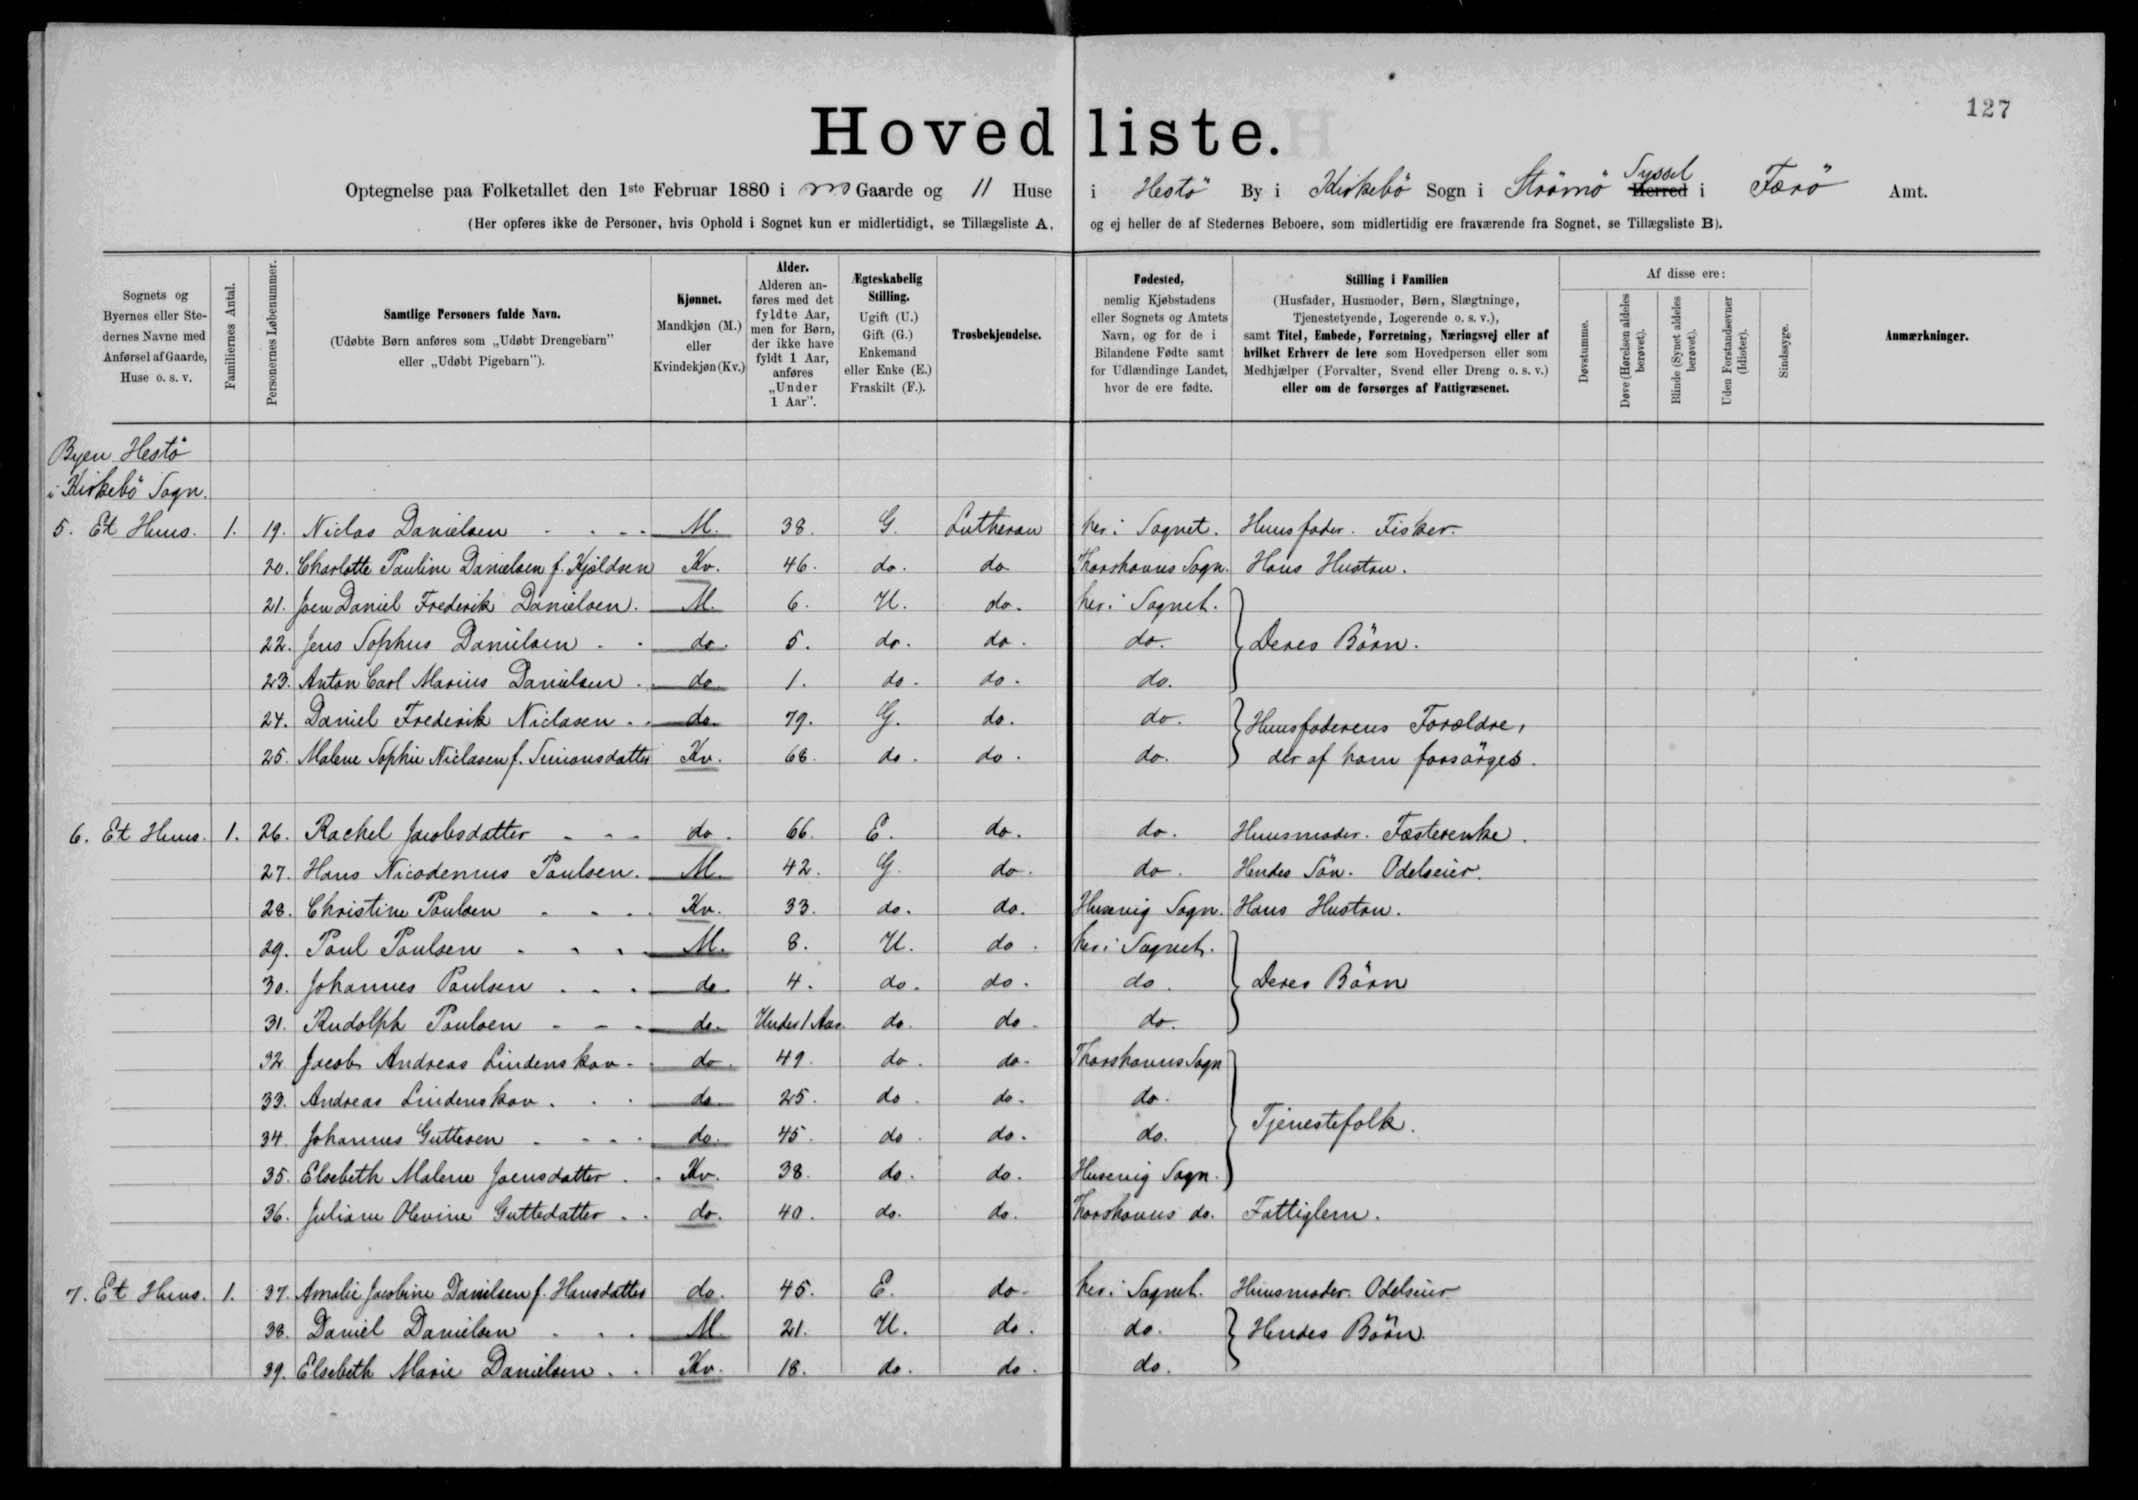 127
Hovedliste.
Optegnelse paa Folketallet den 1ste Februar 1880 i Gaarde og 11 Huse i Hestö By i Kirkebö Sogn i Strömö Syssel Herred i Færö Amt.
(Her opføres ikke de Personer, hvis Ophold i Sognet kun er midlertidigt, se Tillægsliste A, og ej heller de af Stedernes Beboere, som midlertidig ere fraværende fra Sognet, se Tillægsliste B).
Sognets og Byernes eller Stedernes Navne med Anførsel af Gaarde, Huse o. s. v.
Familiernes Antal.
Personernes Løbenummer.
Samtlige Personers fulde Navn.
(Udøbte Børn anføres som „Udøbt Drengebarn" eller „Udøbt Pigebarn").
Kjønnet.
Mandkjøn (M.) eller Kvindekjøn (Kv.)
Alder.
Alderen anføres med det fyldte Aar, men for Børn, der ikke have fyldt 1 Aar, anføres „Under 1 Aar".
Ægteskabelig Stilling.
Ugift (U.) Gift (G.) Enkemand eller Enke (E.) Fraskilt (F.).
Trosbekjendelse.
Fødested,
nemlig Kjøbstadens eller Sognets og Amtets Navn, og for de i Bilandene Fødte samt for Udlændinge Landet, hvor de ere fødte.
Stilling i Familien
(Husfader, Husmoder, Børn, Slægtninge, Tjenestetyende, Logerende o. s. v.),
samt Titel, Embede, Forretning, Næringsvej eller af hvilket Erhverv de leve som Hovedperson eller som Medhjælper (Forvalter, Svend eller Dreng o. s. v.) eller om de forsørges af Fattigvæsenet.
Af disse ere:
Døvstumme.
Døve (Hørelsen aldeles berøvet).
Blinde (Synet aldeles berøvet).
Uden Forstandsevner (Idioter).
Sindssyge.
Anmærkninger.
Byen Hestö
i Kirkebö Sogn.
5. Et Huus. 1. 19. Niclas Danielsen M. 38. G. Lutheran her i Sognet. Huusfader. Fisker.
20. Charlotte Pauline Danielsen f. Kjöldsen Kv. 46. do. do Thorshavns Sogn. Hans Hustru.
21. Joen Daniel Frederik Danielsen. M. 6. U. do. her i Sognet.
22. Jens Sophus Danielsen do. 5. do. do. do. Deres Börn.
23. Anton Carl Marius Danielsen do 1. do. do. do.
24. Daniel Frederik Niclasen do. 79. G. do. do. Huusfaderens Forældre,
25. Malene Sophie Niclasen f. Simonsdatter Kv. 68. do. do. do. der af ham forsörges.
6. Et Huus. 1. 26. Rachel Jacobsdatter do. 66. E. do. do. Huusmoder. Fæsterenke.
27. Hans Nicodemus Poulsen. M. 42. G. do. do. Hendes Sön. Odelseier.
28. Christine Poulsen Kv. 33. do. do. Husevig Sogn. Hans Hustru.
29. Poul Poulsen M. 8. U. do. her i Sognet.
30. Johannes Poulsen do 4. do. do. do. Deres Börn
31. Rudolph Poulsen do. Under 1 Aar. do. do. do.
32 Jacob Andreas Lindenskov do. 49. do. do. Thorshavns Sogn
33. Andreas Lindenskov. do. 25. do. do. do.
34. Johannes Guttesen do. 45. do. do. do. Tjenestefolk.
35. Elsebeth Malene Joensdatter Kv. 38. do. do. Husevig Sogn.
36. Juliane Olevine Guttedatter do. 40. do. do. Thorshavns do. Fattiglem.
7. Et Huus. 1. 37. Amalie Jacobine Danielsen f. Hansdatter do. 45. E. do. her i Sognet. Huusmoder. Odelseier
38. Daniel Danielsen M. 21. U. do. do. Hendes Börn.
39. Elsebeth Marie Danielsen Kv. 18. do. do. do.